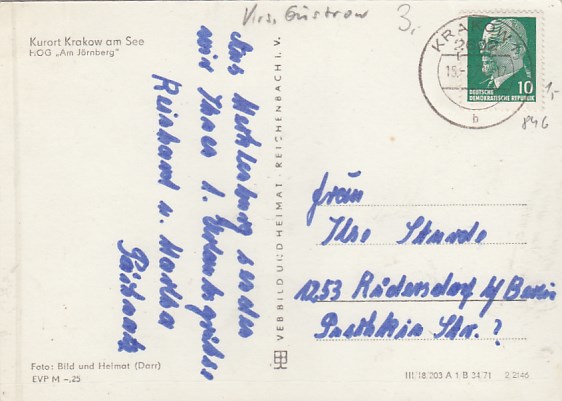 Krs. Güstrow
3,-
Kurort Krakow am See
HOG „Am Jörnberg"
KRAKOW
10
DEUTSCHE
DEMOKRATISCHE REPUBLIK
b
1,-
846
Aus Mecklenburg senden
wir Ihnen l. Urlaubsgrüße
Reinhard u. Martha
VEB BILD UND HEIMAT · REICHENBACH I. V.
Frau
Ilse
1253 Rüdersdorf b/ Berlin
Str. ?
Foto: Bild und Heimat (Darr)
EVP M –,25
III/18/203 A 1/B 34/71 2/2146